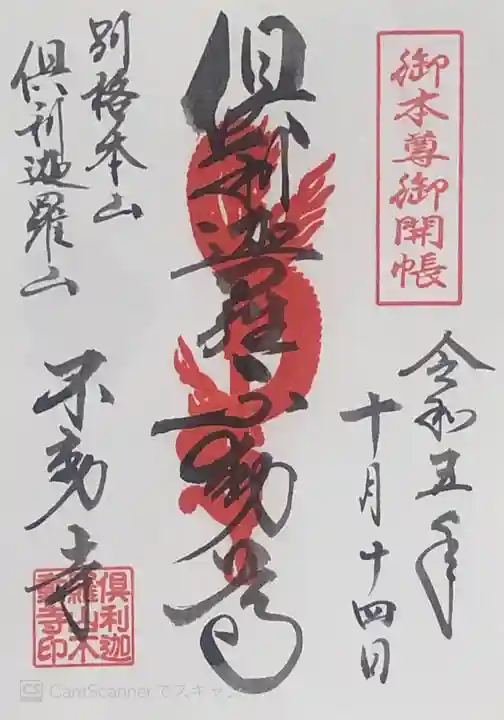 御本尊御開帳
令和五年
十月十四日
倶利迦羅不動尊
別格本山
倶利迦羅山
不動寺
倶利迦
羅山不
動寺印
CS CamScanner でスキャン